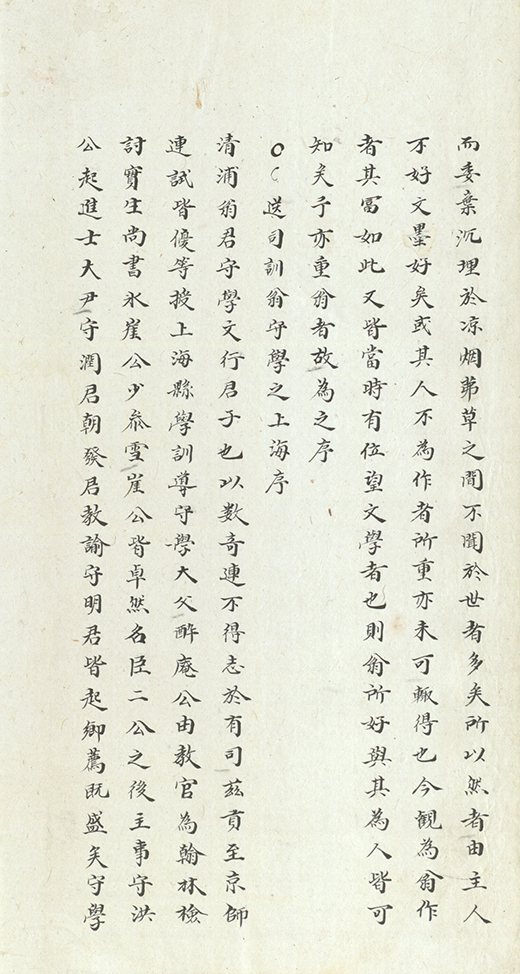 而委棄沉埋於凉烟茀草之間不聞於世者多矣所以然者由主人
不好文墨好矣或其人不為作者所重亦未可輙得也今觀為翁作
者其富如此又皆當時有位望文學者也則翁所好與其為人皆可
知矣予亦重翁者故為之序
〇送司訓翁守學之上海序
清浦翁君守學文行君子也以數奇連不得志於有司茲貢至京師
連試皆優等授上海縣學訓導守學大父醉庵公由教官為翰林檢
討實生尚書氷崖公少叅雪崖公皆卓然名臣二公之後主事守洪
公起進士大尹守潤君朝發君教諭守明君皆起鄉薦既盛矣守學